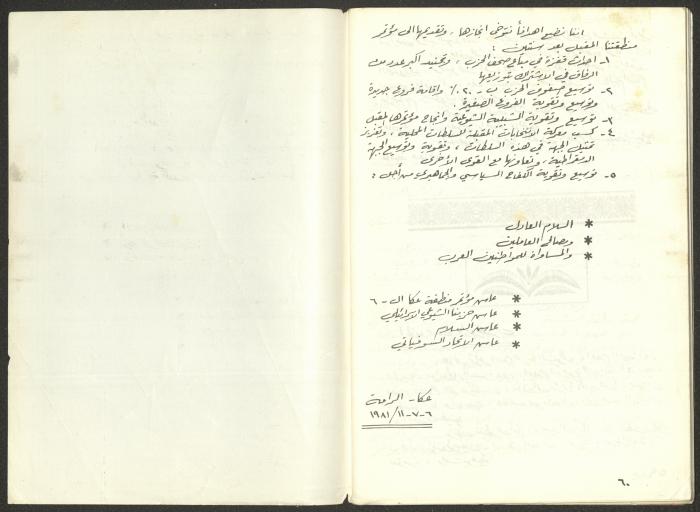 اننا نضع اهدافاً نتوخى انجازها، وتقديمها الى مؤتمر
منطقتنا المقبل بعد سنتين :
١- احداث قفزة في مبايع صحف الحزب ، وتجنيد اكبر عدد من
الرفاق في الاشتراك بتوزيعها
٢- توسيع صفوف الحزب ب - ٢٠٪ واقامة فروع جديدة
وتوسيع وتقوية الفروع الصغيرة .
٣- توسيع وتقوية الشبيبة الشيوعية وانجاح مؤتمرها المقبل
٤- كسب معركة الانتخابات المقبلة للسلطات المحلية ، وتعزيز
تمثيل الجبهة في هذه السلطات ، وتقوية وتوسيع الجبهة
الديمقراطية، وتعاونها مع القوى الأخرى
٥- توسيع وتقوية الكفاح السياسي والجماهيري من أجل :
* السلام العادل
* ومصالح العاملين
* والمساواة للمواطنين العرب
* عاش مؤتمر منطقة عكا ال - ٦
* عاش حزبنا الشيوعي الاسرائيلي
* عاش السلام
* عاش الاتحاد السوفياتي
عكا - الرامة
٦-٧-١١/١٩٨١
٦٠